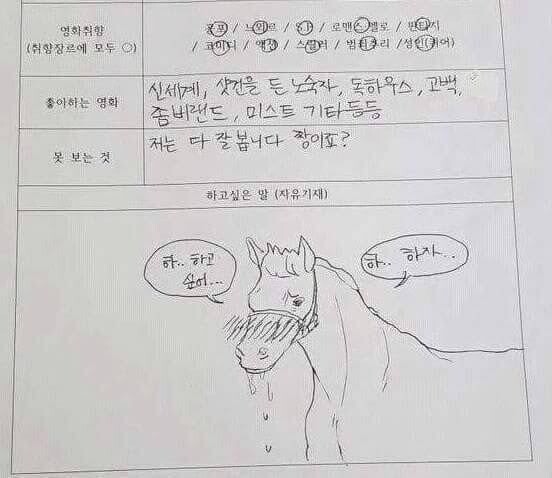 영화취향
(취향장르에 모두 ○)
공포 / 느와르 / SF / 로맨스멜로 / 판타지
/ 코미디 / 액션 / 스릴러 / 범죄추리 / 성인(퀴어)
좋아하는 영화
신세계, 샷건을 든 노숙자, 독하우스, 고백,
좀비랜드, 미스트 기타등등
못 보는 것
저는 다 잘 봅니다 짱이죠?
하고싶은 말 (자유기재)
하.. 하고
싶어...
하.. 하자..